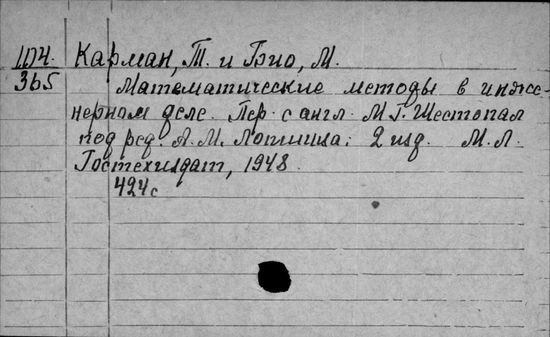 104. Карман, Т. и Био, М.
365 Математические методы в инже-
нерном деле. Пер. с англ. М.Г. Шестопал
под ред. А.М. Лопшица. 2 изд. М. Л.
Гостехиздат, 1948.
424с